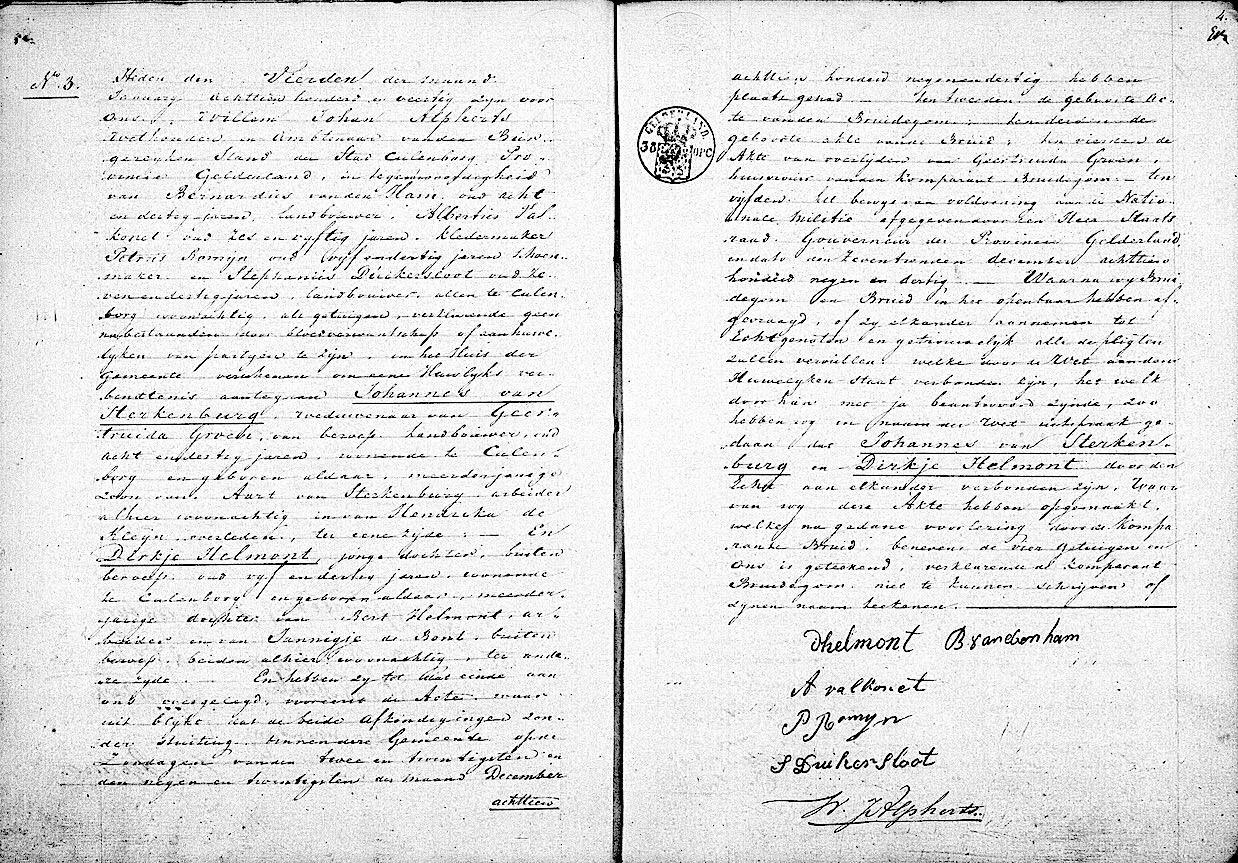 No. 3.
Heden den Vierden der maand
January achttien honderd en veertig zyn voor
Ons, Willem Johan Alpherts
Wethouder en Ambtenaar van den Bur-
gerlyken Stand der Stad Culenborg, Pro-
vincie Gelderland, in tegenwoordigheid
van Bernardus van den Ham, oud acht
en dertig jaren, landbouwer, Albertus Val-
konet oud Zes en vyftig jaren, kledermaker
Petrus Romyn oud vyf en dertig jaren schoen-
maker en Stephanus Duikersloot oud Ze-
ven en dertig jaren, landbouwer, allen te Culen-
borg woonachtig, als getuigen, verklarende geen
nabestaanden door bloedverwantschap of aanhuwe-
lyken van partyen te zyn, in het Huis der
Gemeente verschenen om eene Huwlyks ver-
bendtenis aantegaan Johannes van
Sterkenburg, weduwenaar van Geer-
truida Groen, van beroep landbouwer, oud
acht en dertig jaren, wonende te Culen-
borg en geboren aldaar, meerderjarige
zoon van Aart van Sterkenburg, arbeider
alhier woonachtig en van Hendrika de
Kleyn overleden, ter eene zyde; — En
Dirkje Helmont, jonge dochter, buiten
beroep, oud vyf en dertig jaren, wonende
te Culenborg en geboren aldaar, meerder-
jarige dochter van Bert Helmont, ar-
beider en van Jannigje de Bont, buiten
beroep, beiden alhier woonachtig, ter ande-
re zyde. — En hebben zy tot dat einde aan
ons overgelegd, vooreerst de Acte, waar
uit blykt dat de beide afkondigingen zon-
der stuiting binnen deze Gemeente op de
Zondagen van den twee en twintigsten en
den negen en twintigsten der maand December
achttien
4.
achttien honderd negenendertig hebben
plaats gehad — ten tweeden: de geboorte Ac-
te van den Bruidegom; ten derden: de
geboorte akte van de Bruid; ten vierden de
Akte van overlyden van Geertruida Groen,
huisvrouw van den komparant Bruidegom — ten
vyfden het bewys van voldoening aan de Natio-
nale Militie afgegeven door den Heer Staats
raad Gouverneur der Provincie Gelderland
in dato den Zeventienden december achttien
honderd negen en dertig — Waarna wy Brui-
degom en Bruid in het openbaar hebben af-
gevraagd, of zy elkander aannemen tot
Echtgenoten en getrouwelyk alle de pligten
zullen vervullen welke door de Wet aan den
Huwelyken staat verbonden zyn, het welk
door hun met ja beantwoord zynde, zoo
hebben wy in naam der Wet uitspraak ge-
daan dat Johannes van Sterken-
burg en Dirkje Helmont door den
Echt aan elkander verbonden zyn, waar
van wy deze Akte hebben opgemaakt,
welke na gedane voorlezing door de Kompa-
rante Bruid, benevens de vier getuigen en
Ons is getekend, verklarende de Komparant
Bruidegom niet te kunnen schryven of
zynen naam teekenen.
GELDERLAND.
38 OPC
Dhelmont BvandenHam
A valkonet
P Romyn
S Duikersloot
W. J Alpherts.